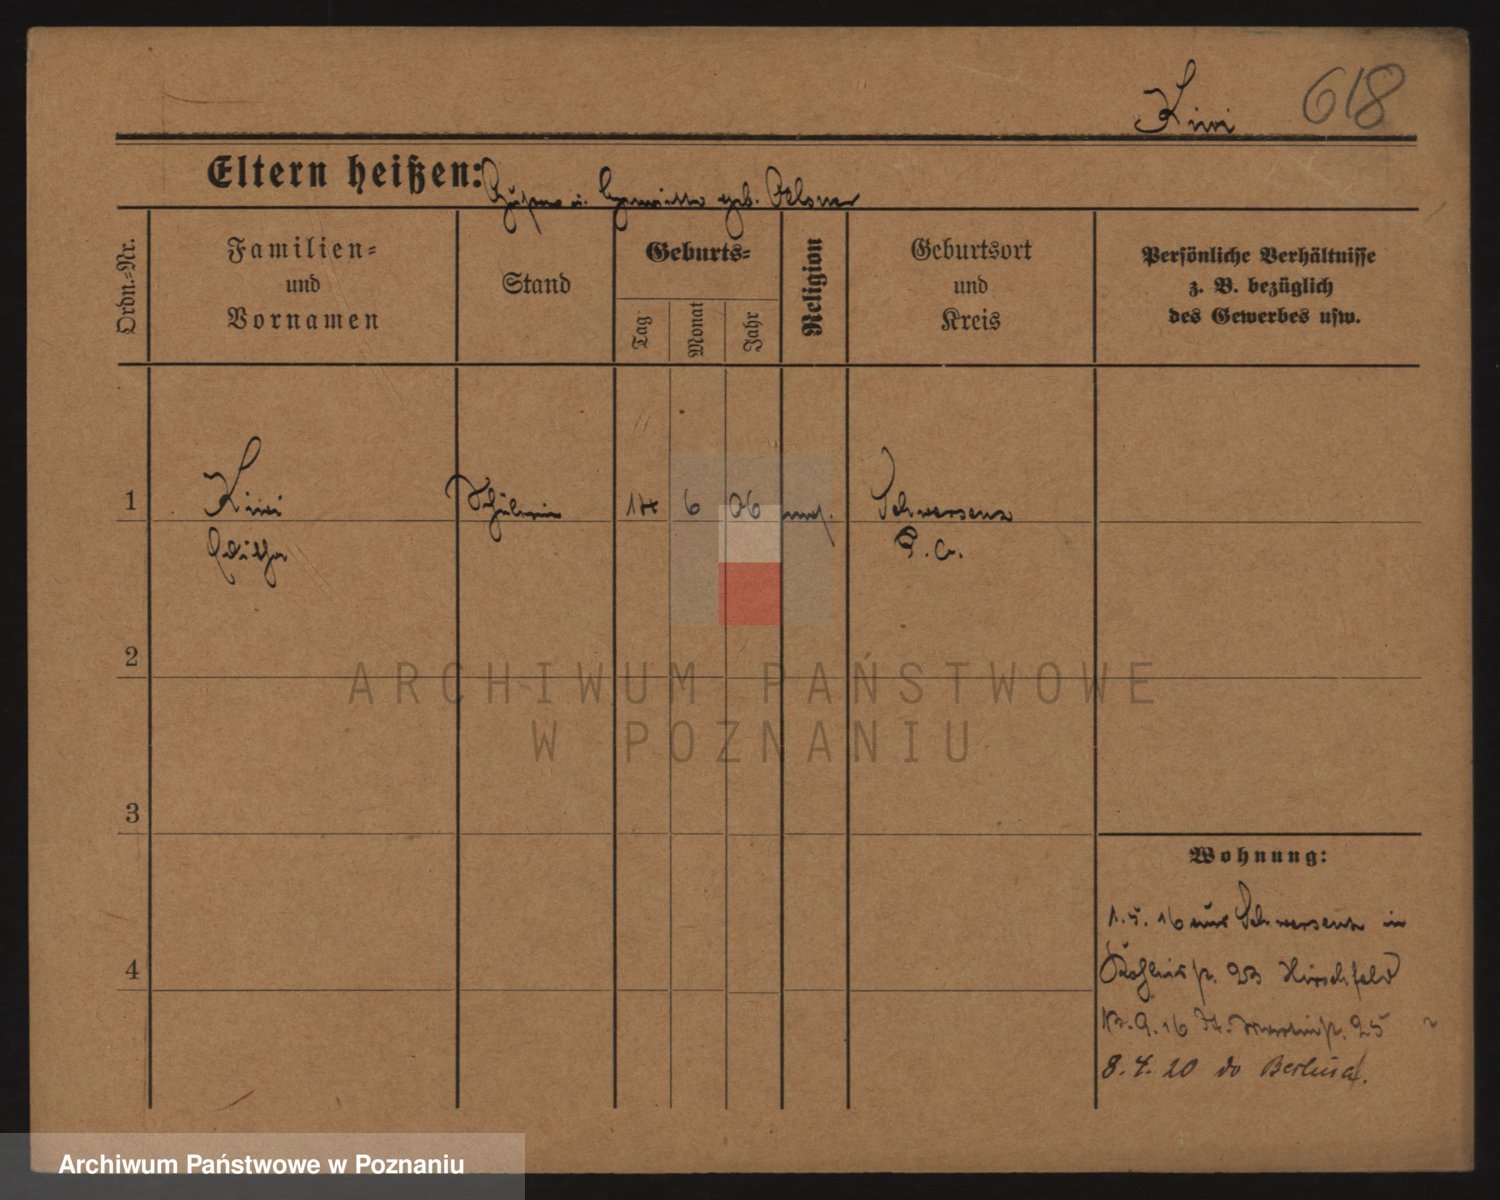 Kiwi 618
Eltern heißen: u. geb.
Ordn.-Nr.
Familien-
und
Vornamen
Stand
Geburts-
Tag
Monat
Jahr
Religion
Geburtsort
und
Kreis
Persönliche Verhältnisse
z. B. bezüglich
des Gewerbes usw.
1 Kiwi Schülerin 14 6 06 Schwersenz
Editha P. O.
2
ARCHIWUM PAŃSTWOWE
W POZNANIU
3
Wohnung:
1.5.16 aus Schwersenz in
23 Hirschfeld
4
13.9.16 St. Martinstr. 25
8.4.20 do
Archiwum Państwowe w Poznaniu